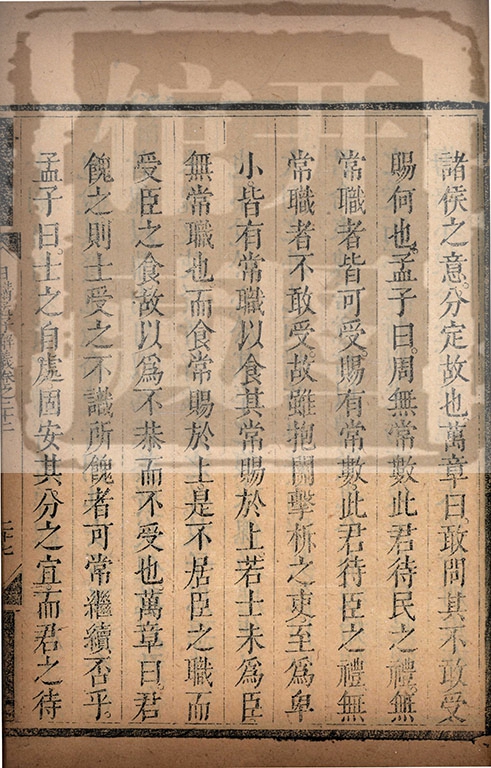 諸侯之意分定故也萬章曰敢問其不敢受
賜何也孟子曰周無常數此君待民之禮無
常職者皆可受賜有常數此君待臣之禮無
常職者不敢受故雖抱關擊柝之吏至爲卑
小皆有常職以食其常賜於上若士未爲臣
無常職也而食常賜於上是不居臣之職而
受臣之食故以爲不恭而不受也萬章曰君
餽之則士受之不識所餽者可常繼續否乎
孟子曰士之自處固安其分之宜而君之待
日講 解義卷之二十二
二十七